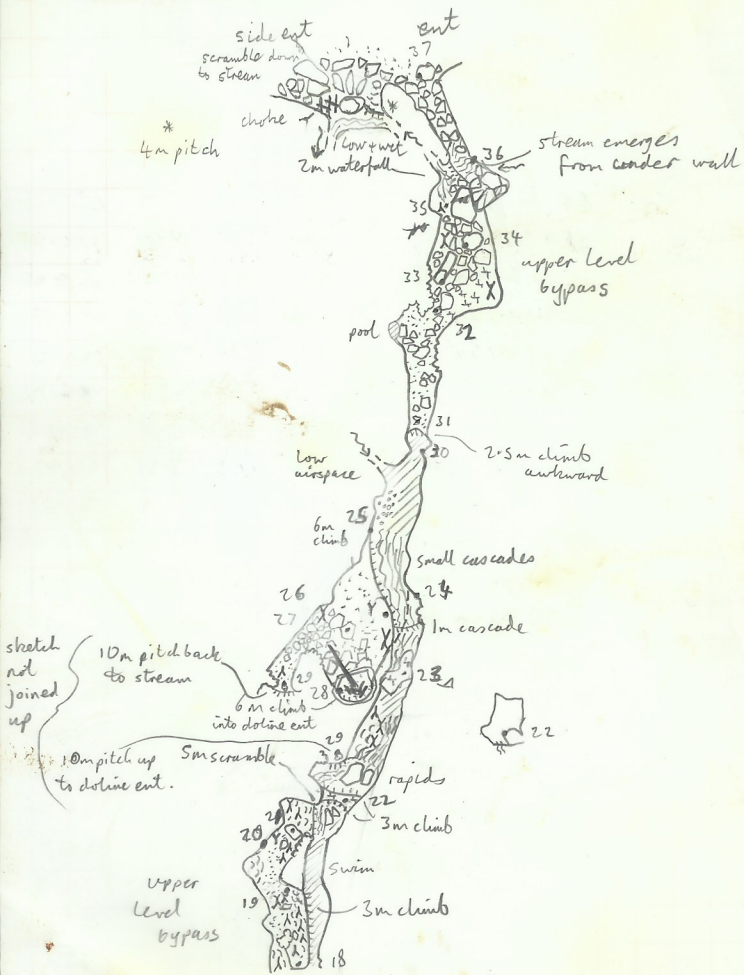 side ent
ent
scramble down
to stream
37
choke
*
*
4m pitch
low + wet
2m waterfall
36
stream emerges
from under wall
35
34
upper level
bypass
33
32
pool
31
30
2.5m climb
awkward
low
airspace
25
6m
climb
small cascades
24
26
27
1m cascade
sketch
not
joined
up
10m pitch back
to stream
29
28
23
6m climb
into doline ent
22
29
10m pitch up
to doline ent.
5m scramble
rapids
22
3m climb
20
swim
upper
level
bypass
19
3m climb
18